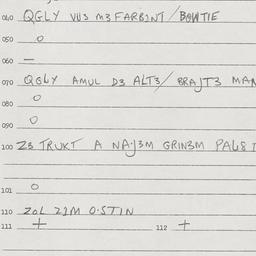 040 QGLY VU3 M3 FARB2NT / BOWTIE
050 O
060 —
070 QGLY AMUL D3 ALT3/ BRAJT3 MAN
080 O
090 O
100 Z3 TRUKT A NAJ3M GRIN3M PALST
101 O
110 ZOL 22M O.STIN
111 + 112 +